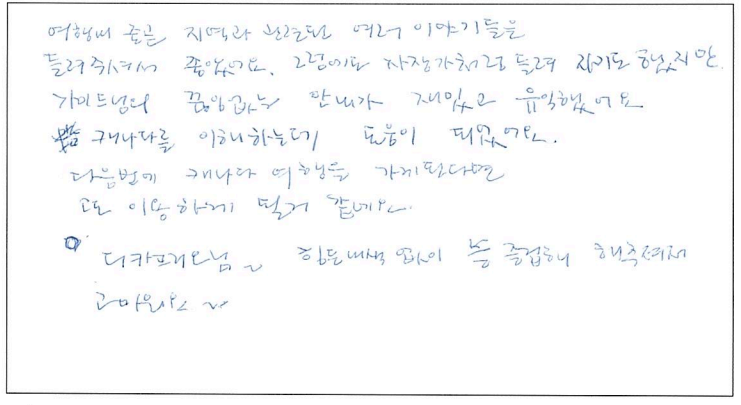 여행에 좋은 지역과 관련된 여러 이야기들을
들려주셔서 좋았어요. 그럼에도 자장가처럼 들려 자기도 했지만
가이드님의 끊임없는 안내가 재밌고 유익했어요
캐나다를 이해하는데 도움이 되었어요.
다음번에 캐나다 여행을 가게된다면
또 이용하게 될거 같네요.
디카프리오님~ 힘든내색 없이 늘 즐겁게 해주셔서
고마워요~